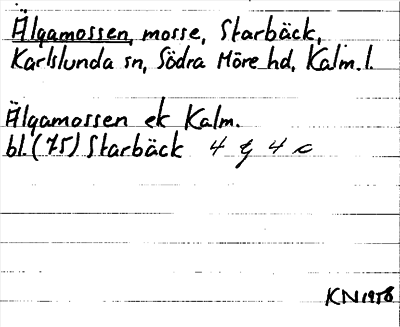 Älgamossen, mosse, Starbäck,
Karlslunda sn, Södra Möre hd, Kalm. l.
Älgamossen ek Kalm.
bl. (75) Starbäck 4 g 4 c
KN 1958